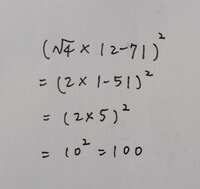 (√4 × |2-7|)²
= (2 × |-5|)²
= (2×5)²
= 10² = 100